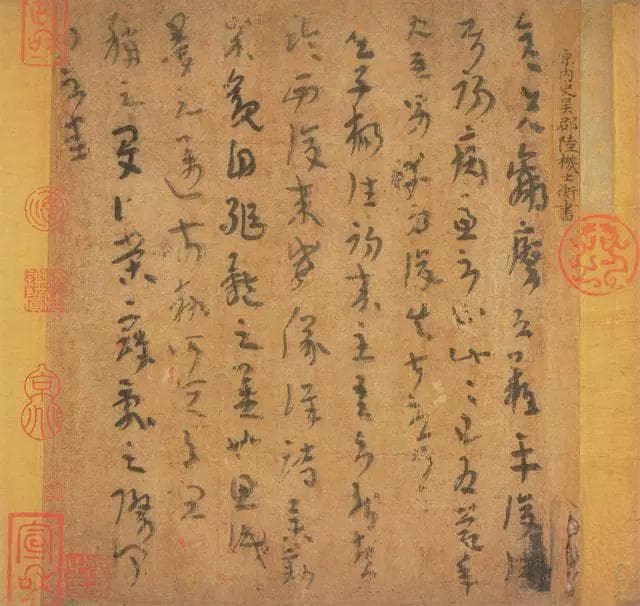 晉內史吳郡陸機士衡書
彥先羸瘵恐難平復往屬
初病慮不止此此已為慶承
使唯男幸為復失前憂耳
吳子楊往初來主吾不能盡
臨西復來威儀詳跱舉動
成觀自軀體之美也思識
量之邁前勢所恒有宜
稱之夏伯榮寇亂之際聞
問不悉